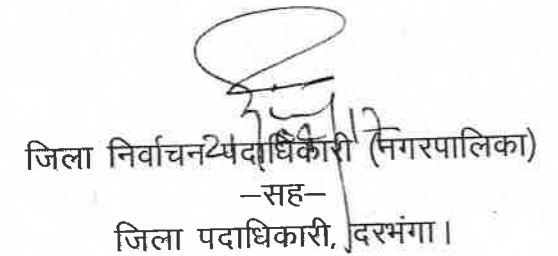 जिला निर्वाचन पदाधिकारी (नगरपालिका)
–सह–
जिला पदाधिकारी, दरभंगा।